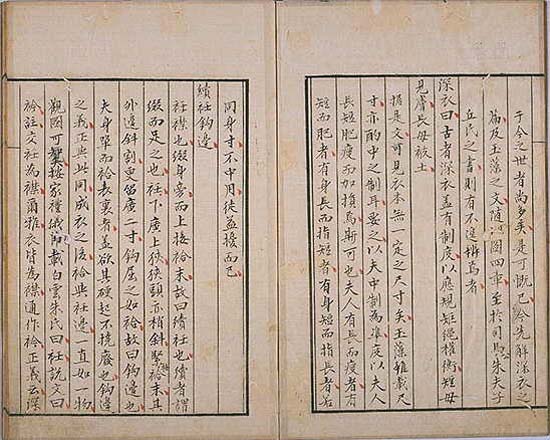 于今之世者尚多矣是可慨已今先解深衣之
篇及玉藻之文随圖四章至於司馬朱夫子
丘氏之書則有不遑焉者
深衣曰古者深衣蓋有制度以應規矩繩權衡短毋
見膚長毋被土
据是文可見衣本無一定之尺寸矣玉藻雖載尺
寸亦酌中之耳要之以夫中制為準度以夫人
長短肥瘦而加損焉斯可也夫人有長而瘦者有
短而肥者有身長而指短者有身短而指長者若
同身寸不中用徒益擾而已
續衽鉤邊
衽襟也綴身旁而上接袷末故曰續衽也續者謂
綴而足之也衽下廣上狹狹頭亦稍斜緊袷末其
外邊斜割更留廣二寸鉤屈之如袷故曰鉤邊也
夫身單而袷表裏者蓋欲其硬起不撓廢也鉤邊
之義正與此同成衣之後袷與衽邊一直如一物
觀圖可按家禮儀節載白雲朱氏曰衽說文曰
衿註交衽為襟爾雅衣皆為襟通作衿正義云深